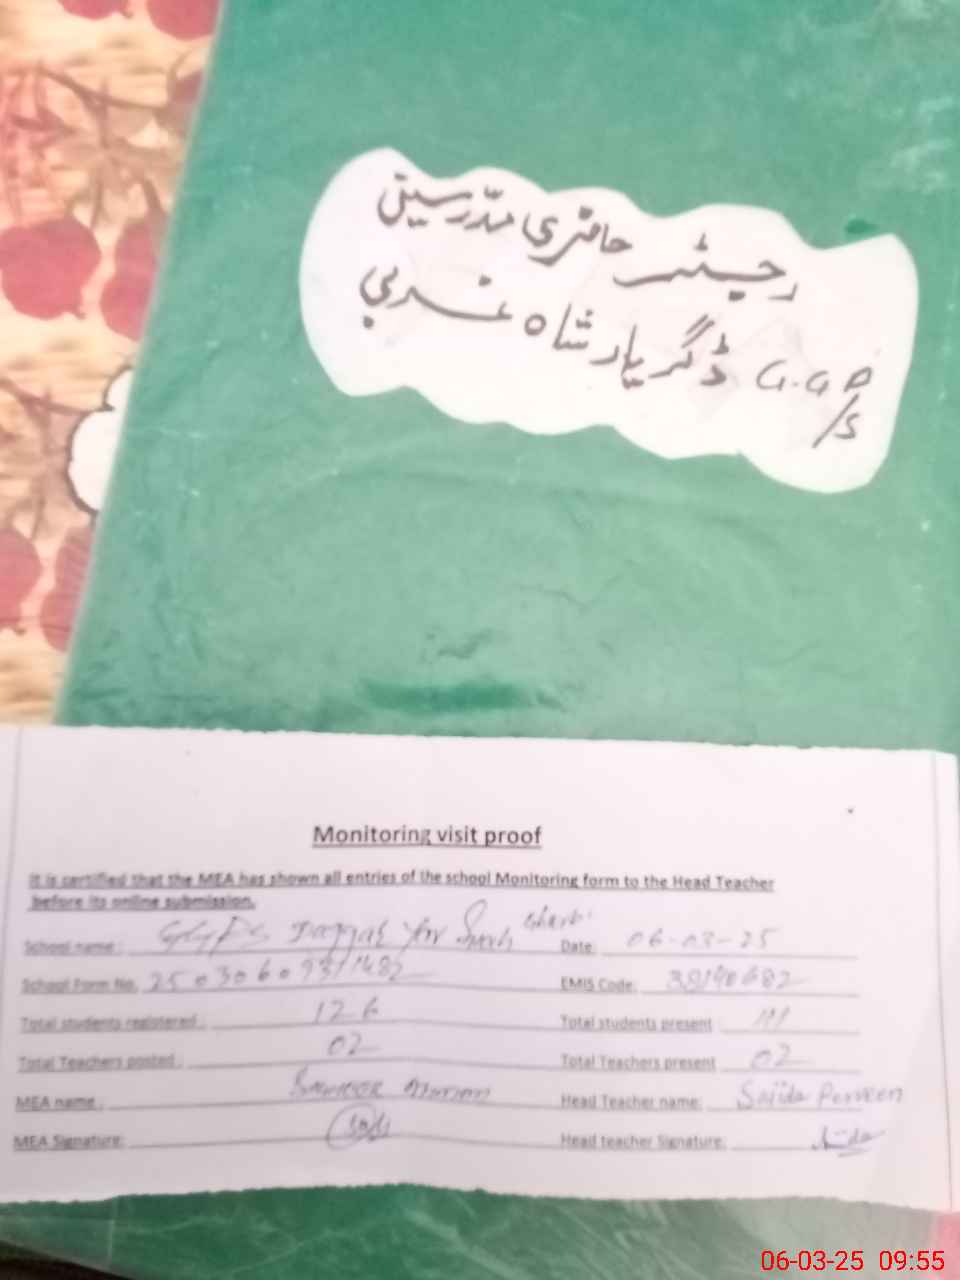 رجسٹر حاضری مدرسین
G.G P/S ڈگر یار شاہ غربی
Monitoring visit proof
It is certified that the MEA has shown all entries of the school Monitoring form to the Head Teacher
before its online submission.
School name : GGPS Daggar Yar Shah Gharbi Date: 06-03-25
School Form No. EMIS Code:
Total students registered : 126 Total students present : 111
Total Teachers posted : 02 Total Teachers present 02
MEA name : Head Teacher name: Sajida Parveen
MEA Signature: Head teacher Signature:
06-03-25 09:55